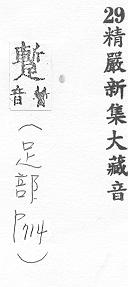 29精嚴新集大藏音
音
(足部 P714)